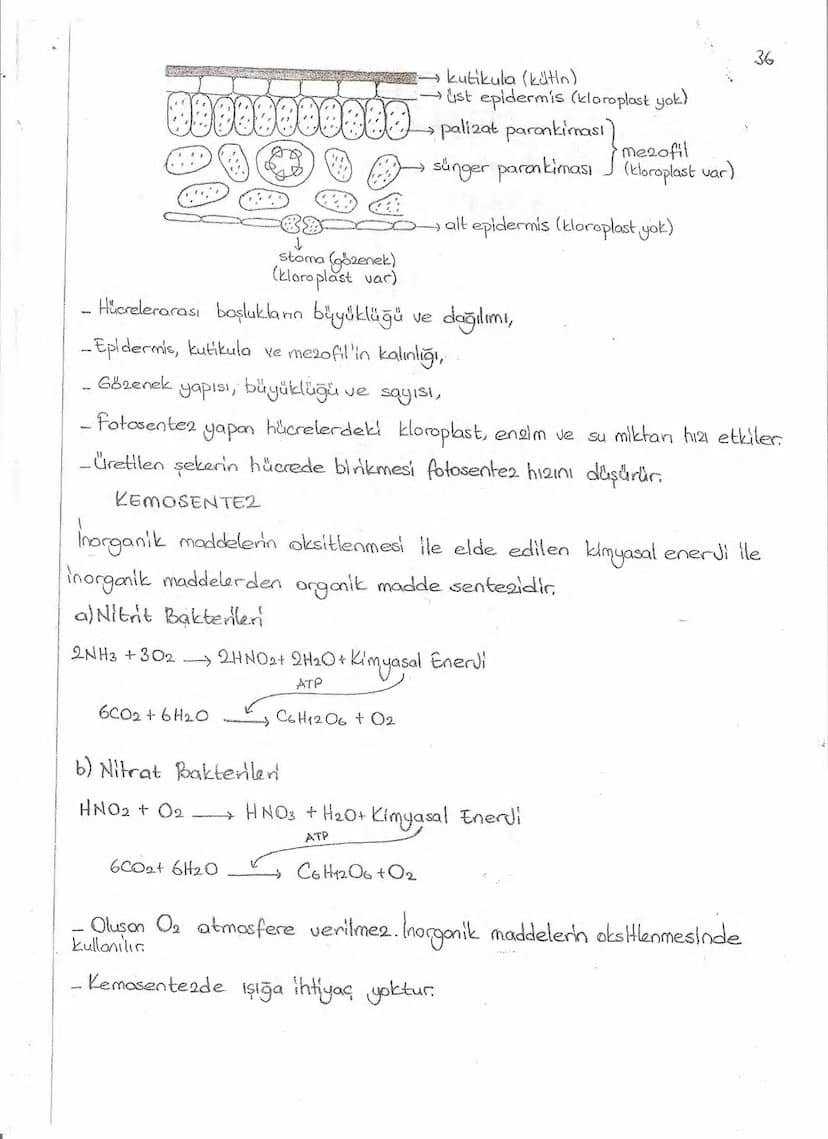 36
→ kutikula (kütin)
→ üst epidermis (kloroplast yok)
→ palizat parankiması
→ sünger parankiması
mezofil
(kloroplast var)
→ alt epidermis (kloroplast yok)
↓
stoma (gözenek)
(kloroplast var)
- Hücrelerarası boşlukların büyüklüğü ve dağılımı,
- Epidermis, kutikula ve mezofil'in kalınlığı,
- Gözenek yapısı, büyüklüğü ve sayısı,
- Fotosentez yapan hücrelerdeki kloroplast, enzim ve su miktarı hızı etkiler.
- Üretilen şekerin hücrede birikmesi fotosentez hızını düşürür.
KEMOSENTEZ
İnorganik maddelerin oksitlenmesi ile elde edilen kimyasal enerji ile
inorganik maddelerden organik madde sentezidir.
a) Nitrit Bakterileri
2NH3 + 3O2 → 2HNO2 + 2H2O + Kimyasal Enerji
ATP
6CO2 + 6H2O → C6H12O6 + O2
b) Nitrat Bakterileri
HNO2 + O2 → HNO3 + H2O + Kimyasal Enerji
ATP
6CO2 + 6H2O → C6H12O6 + O2
- Oluşan O2 atmosfere verilmez. İnorganik maddelerin oksitlenmesinde
kullanılır.
- Kemosentezde ışığa ihtiyaç yoktur.